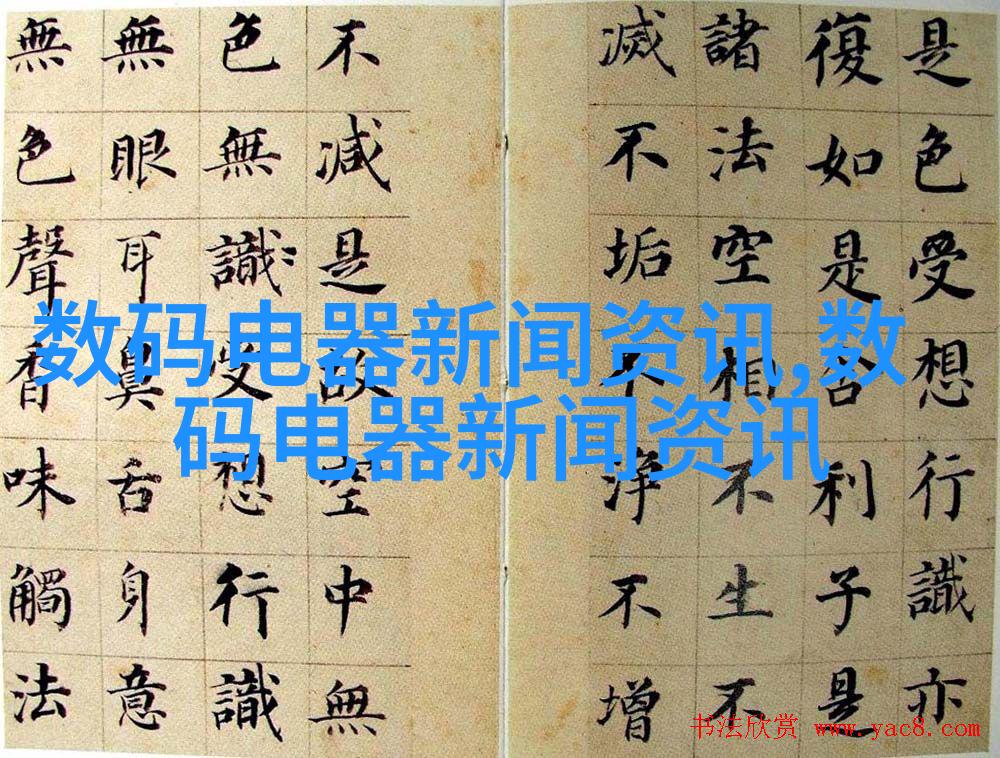 是色受想行識亦
復如是舍利子是
諸法空相不生不
滅不垢不淨不增
不減是故空中無
色無識受想行識
無眼耳鼻舌身意
無色聲香味觸法
数码电器新闻资讯,数
码电器新闻资讯
书法欣赏 www.yac8.com